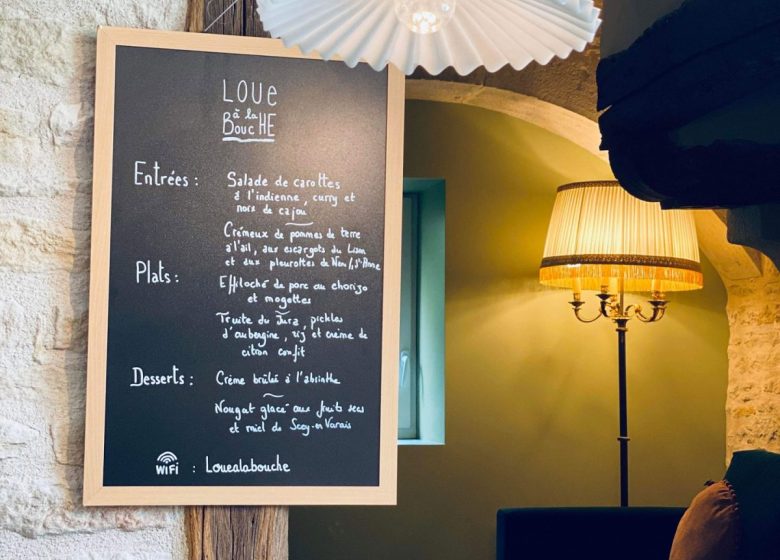 LOUe
à la
BoucHE
Entrées : Salade de carottes
à l'indienne, curry et
noix de cajou
Crémeux de pommes de terre
à l'ail, aux escargots du
et aux pleurottes de
Plats : Effiloché de porc au chorizo
et mogettes
Truite du Jura, pickles
d'aubergine, riz et crème de
citron confit
Desserts : Crème brûlée à l'absinthe
Nougat glacé aux fruits secs
et miel de Scey-en-Varais
WiFi : Louealabouche